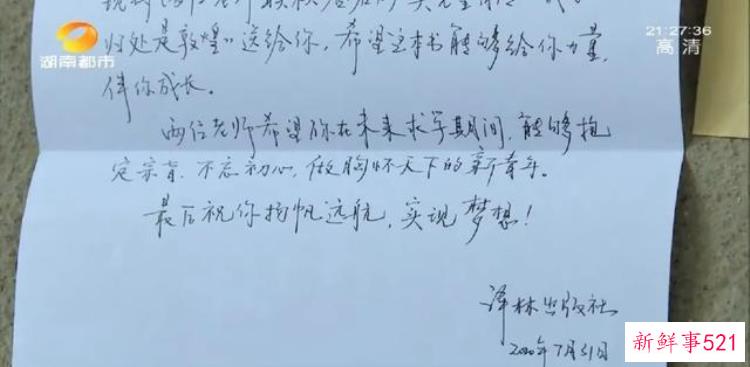 21:27:36
高清
湖南都市
归处是敦煌》送给你,希望这本书能够给你力量,
伴你成长。
两位老师希望你在未来求学期间,能够抱
定宗旨,不忘初心,做胸怀天下的新青年。
最后祝你扬帆远航,实现梦想!
译林出版社
2020年7月31日
新鲜事521